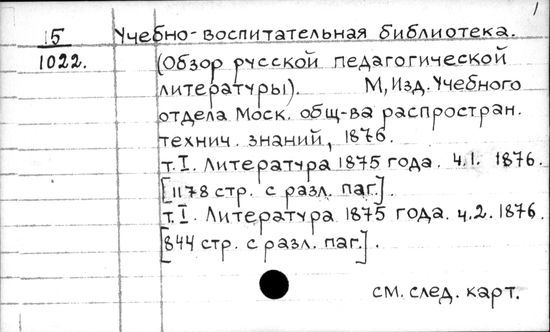 1
15 Учебно-воспитательная библиотека.
1022. (Обзор русской педагогической
литературы). М, Изд. Учебного
отдела Моск. общ-ва распростран.
технич. знаний, 1876.
т. I. Литература 1875 года. ч.1. 1876.
[1178 стр. с разл. паг.].
т. I. Литература 1875 года. ч.2. 1876.
[844 стр. с разл. паг.].
см. след. карт.